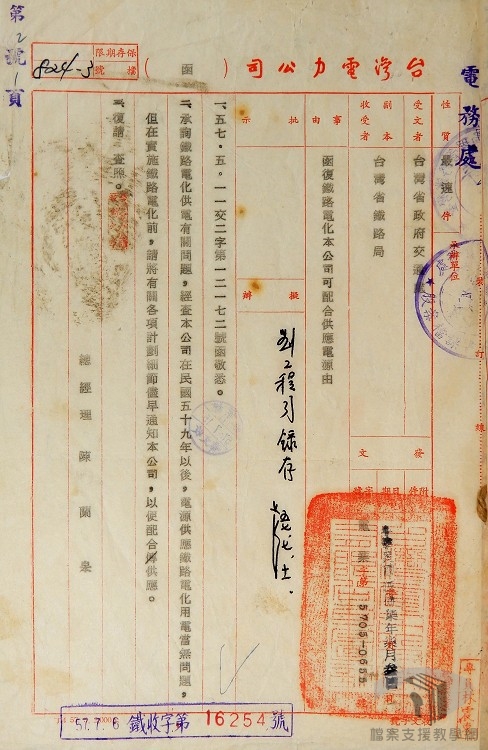 第2號1頁
保存期限
檔號
8024-3
台灣電力公司(　　)函
電務處
性質
最速件
受文者
台灣省政府交通處
副本收受者
台灣省鐵路局
事由
函復鐵路電化本公司可配合供應電源由
批示
擬辦
承辦單位
裝訂線
發文
附件
日期
字號
電業
5705-0655
一、五七．五．一一交二字第一二一七二號函敬悉。
二、承詢鐵路電化供電有關問題，經查本公司在民國五十九年以後，電源供應鐵路電化用電當無問題，
但在實施鐵路電化前，請將有關各項計劃細節儘早通知本公司，以便配合供應。
三、復請　查照。
總經理　陳蘭皋
57.7.6 鐵收字第16254號
檔案支援教學網